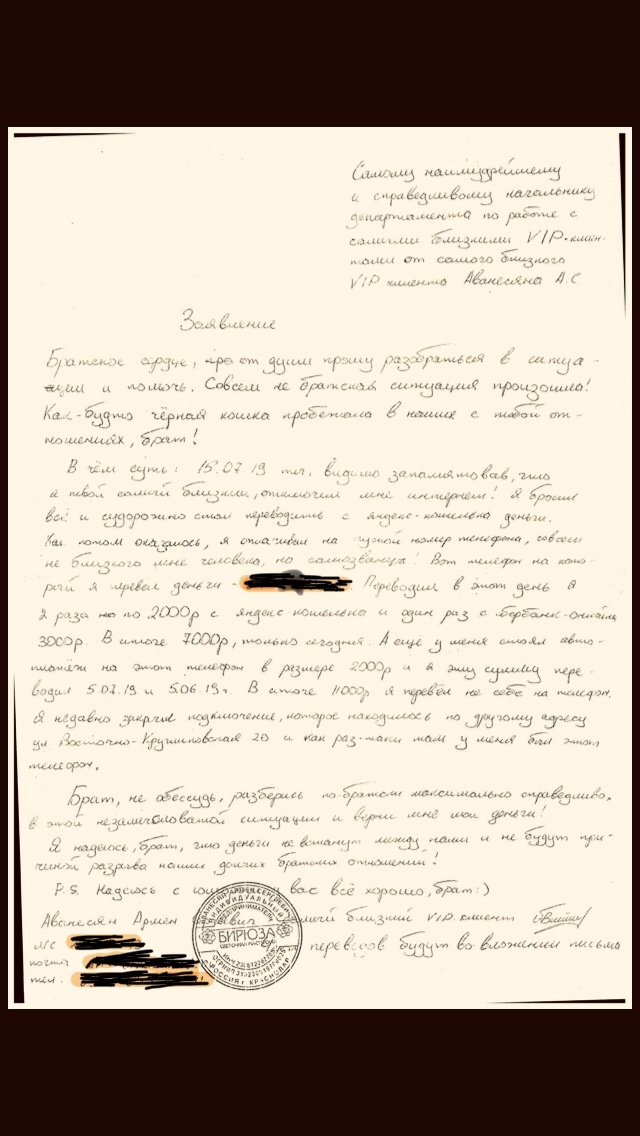 Самому наимудрейшему
и справедливому начальнику
департамента по работе с
самыми близкими VIP-клиен-
тами от самого близкого
VIP клиента Аванесяна А.С
Заявление
Братское сердце, от души прошу разобраться в ситуа-
ции и помочь. Совсем не братская ситуация произошла!
Как-будто чёрная кошка пробежала в наших с тобой от-
ношениях, брат!
В чём суть: 15.07.19 ты, видимо запамятовав, что
я твой самый близкий, отключил мне интернет! Я бросил
всё и судорожно стал переводить с яндекс-кошелька деньги.
Как потом оказалось, я оплачивал на чужой номер телефона, совсем
не близкого мне человека, но самозванца! Вот телефон на кото-
рый я перевёл деньги - Переводил в этот день я
2 раза по 2000р с яндекс-кошелька и один раз с сбербанк-онлайна
3000р. В итоге 7000р, только сегодня. А ещё у меня стоял авто-
платёж на этот телефон в размере 2000р и я эту сумму пере-
водил 5.07.19 и 5.06.19г. В итоге 11000р я перевёл не себе на телефон.
Я недавно закрыл подключение, которое находилось по другому адресу
ул. Восточно-Кругликовская 20 и как раз-таки там у меня был этот
телефон.
Брат, не обессудь, разберись по-братски максимально справедливо,
в этой незамысловатой ситуации и верни мне мои деньги!
Я надеюсь, брат, что деньги не встанут между нами и не будут при-
чиной разрыва наших долгих братских отношений!
P.S. Надеюсь с у вас всё хорошо, брат:)
Аванесян Армен самый близкий VIP-клиент
л/с переводов будут во вложении письма
почта
тел.
ИНДИВИДУАЛЬНЫЙ
ПРЕДПРИНИМАТЕЛЬ
БИРЮЗА
РОССИЯ г КРАСНОДАР